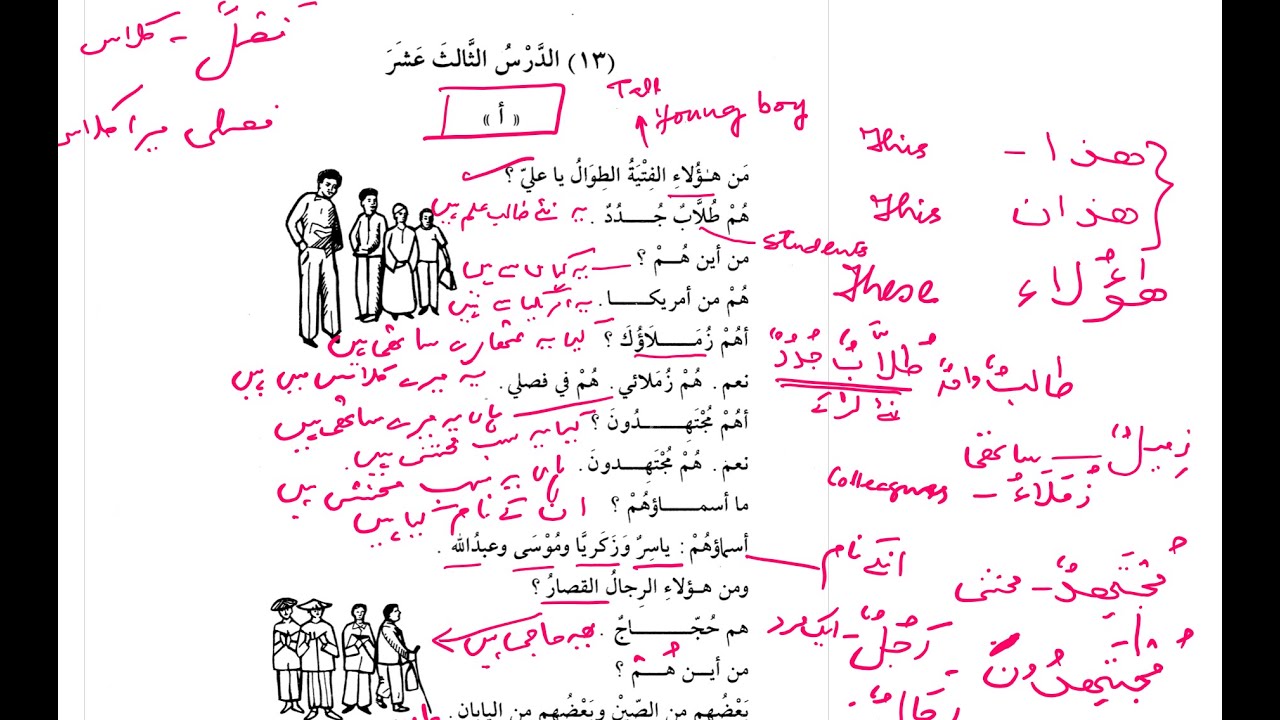 فصلٌ - کلاس
فصلی میرا کلاس
(١٣) الدَّرْسُ الثَّالثَ عَشَرَ
« أ »
Tall
Young boy
مَن هـٰؤُلاءِ الفِتْيَةُ الطِوَالُ يا عليّ ؟
هُمْ طُلَّابٌ جُـــدُدٌ .
یہ نئے طالب علم ہیں
students
من أين هُـــمْ ؟
یہ کہاں سے ہیں
هُمْ من أمريكـــــا .
یہ امریکہ سے ہیں
أهُمْ زُمَـــلَاؤُكَ ؟
کیا یہ تمھارے ساتھی ہیں
نعم. هُمْ زُمَلائي. هُمْ في فصلي.
یہ میرے کلاس میں ہیں
ہاں یہ میرے ساتھی ہیں
أهُمْ مُجْتَهِـــــدُونَ ؟
کیا یہ سب محنتی ہیں
نعم. هُمْ مُجْتَهِـدونَ.
ہاں یہ سب محنتی ہیں
ما أسمـــــاؤهُمْ ؟
ان کے نام کیا ہیں
أسماؤهُمْ : ياسِرٌ وَزَكَريَّا ومُوْسَى وعبدُالله .
انکے نام
ومن هـؤلاءِ الرِجالُ القصارُ ؟
هم حُجّـــــاجٌ .
یہ حاجی ہیں
من أيـن هُـمْ ؟
بَعْضُهُم من الصِّيْنِ وبَعْضُهم من اليابان.
This هذا -
This هذان
These هؤُلاء
طُلَّابٌ جُدُدٌ
طالبٌ
نئے لڑکے
زمیلٌ — ساتھی
Colleagues - زُمَلَاءُ
مُجتَهِدٌ - محنتی
رَجُلٌ - ایک مرد
مُجتَهِدُونَ